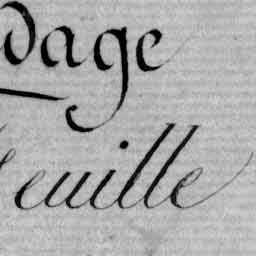 dage
feuille